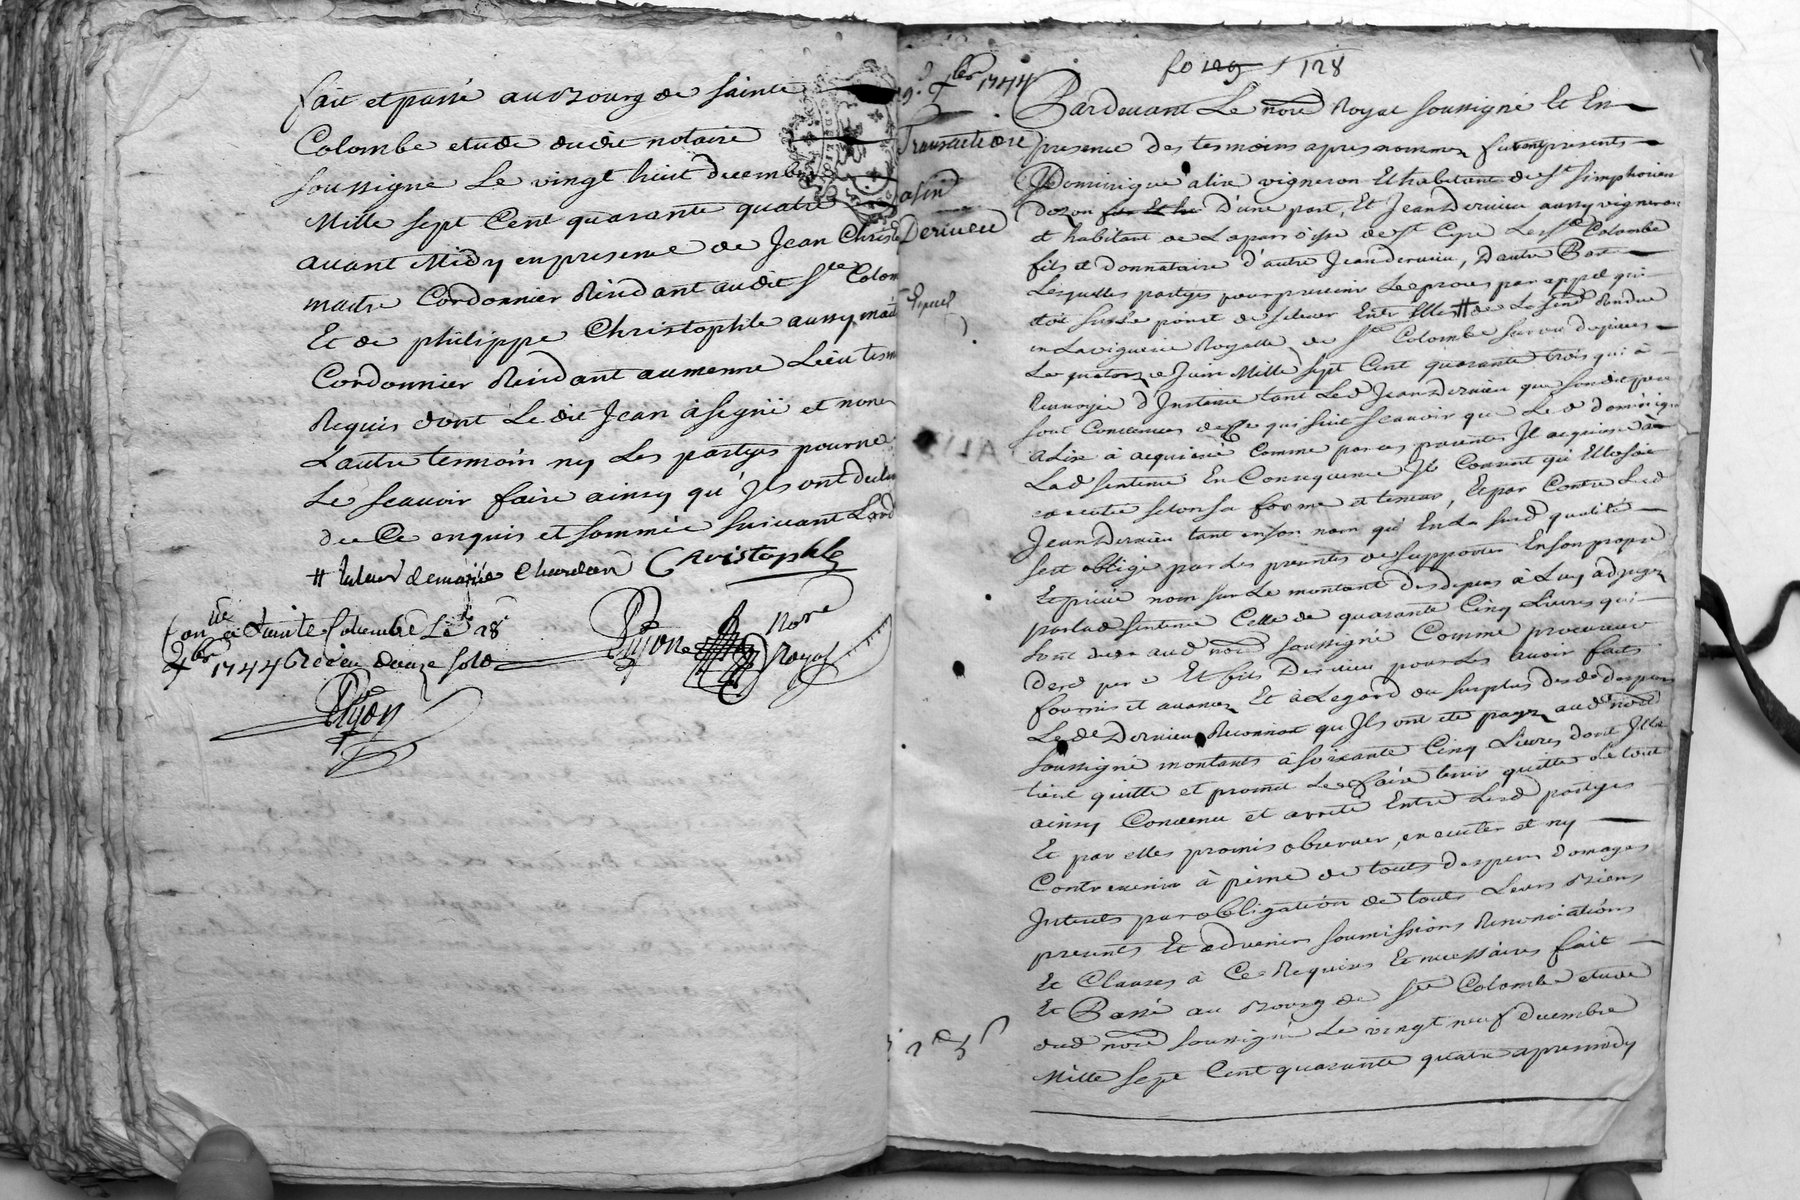 fait et passé au Bourg de sainte
Colombe etude dudit notaire
soussigne Le vingt huit decembre
Mille sept Cent quarante quatre
auant Midy en presence de Jean Christo
maitre Cordonnier Residant audit Ste Colom
Et de philippe Christophle aussy mait
Cordonnier Residant au mesme Lieu tesm
Requis dont Le dit Jean à signé et non
Lautre tesmoin ny Les partyes pour ne
Le scauoir faire ainsy qu'Jls ont declar
de Ce enquis et sommée suiuant Lord
Christophle
Pyon Nore
Royal
a Sainte Colombe Le 28e
xbre 1744 Receu douze sols
Pyon
fo 129 128
29e xbre 1744
Transaction
alix
Derieu
Expedié
Pardeuant Le nore Royal soussigné Et En
presence des tesmoins apres nommez furent presents
Dominique alix vigneron Et habitant de St simphorien
dozon D'une part, Et Jean Derieu aussy vigneron
et habitant de La parroisse de St Cyre Les Ste Colombe
fils et donnataire d'autre Jean derieu, D'autre Part
Lesquelles partyes pour preuenir Le proces par appel qui
etoit sur Le point de seleuer Entr'Elles # de La sence Rendue
en La viguerie Royalle de Ste Colombe
Le quatorze Juin Mille sept Cent quarante trois qui à
Renuoyé d'Instance tant Led Jean Derieu que son dit pere
sont Conuenues de Ce qui suit scauoir que Le d dominique
alix à acquiescé Comme par ces presentes Jl acquiesce à
Lad sentence En Consequence Jl Consent qu'Elle soit
executée selon sa forme et teneur, Et par Contre Led
Jean Derieu tant en son nom qu'En La susd qualité
sest obligé par Les presentes de supporter En son propre
Et priué nom sur Le montant des depens à Luy adjugez
par lad sentence Celle de quarante Cinq Liures qui
sont deus aud nore soussigné Comme procureur
desd pere Et fils Derieu pour Les auoir faits
fournis et auancez Et à Legard du surplus desd despens
Le d Derieu Reconnoit qu'Jls ont eté payez aud nore
soussigné montants à soixante Cinq Liures dont Jl Le
tient quitte et promet Le faire tenir quitte Le tout
ainsy Conuenu et arreté Entre Lesd partyes
Et par elles promis obseruer, executer et ny
Contreuenir à peine de touts despens Domages
Interets par obligation de touts Leurs Biens
presents Et aduenir soumissions Renonciations
Et Clauses à Ce Requises Et necessaires fait
Et Passé au Bourg de Ste Colombe etude
dud nore soussigné Le vingt neuf decembre
Mille sept Cent quarante quatre apresmidy